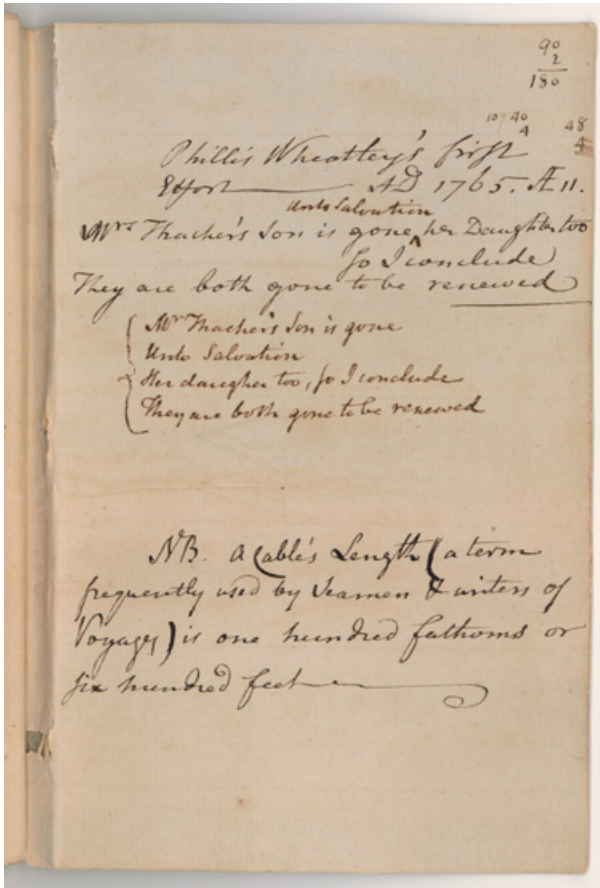 90
2
180
10/ 40
4
48
4
Phillis Wheatley's first
Effort — AD 1765. Æ 11.
Unto Salvation
Mrs Thacher's Son is gone ^ her Daughter too
so I conclude
They are both gone to be renewed
Mrs Thacher's Son is gone
Unto Salvation
Her daugher too, so I conclude
They are both gone to be renewed
NB. a Cable's Length (a term
frequently used by Seamen & writers of
Voyages) is one hundred fathoms or
six hundred feet